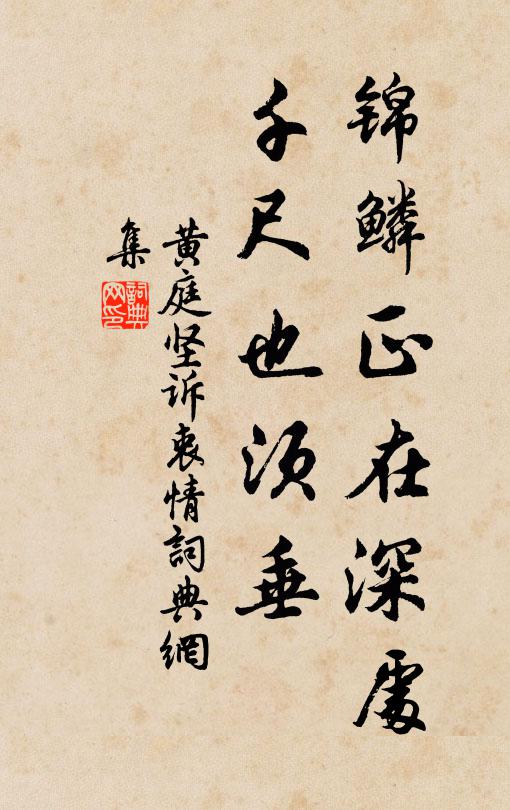 锦鳞正在深處
千尺也须垂
黄庭坚诉衷情詞典網
集
詞典
网印